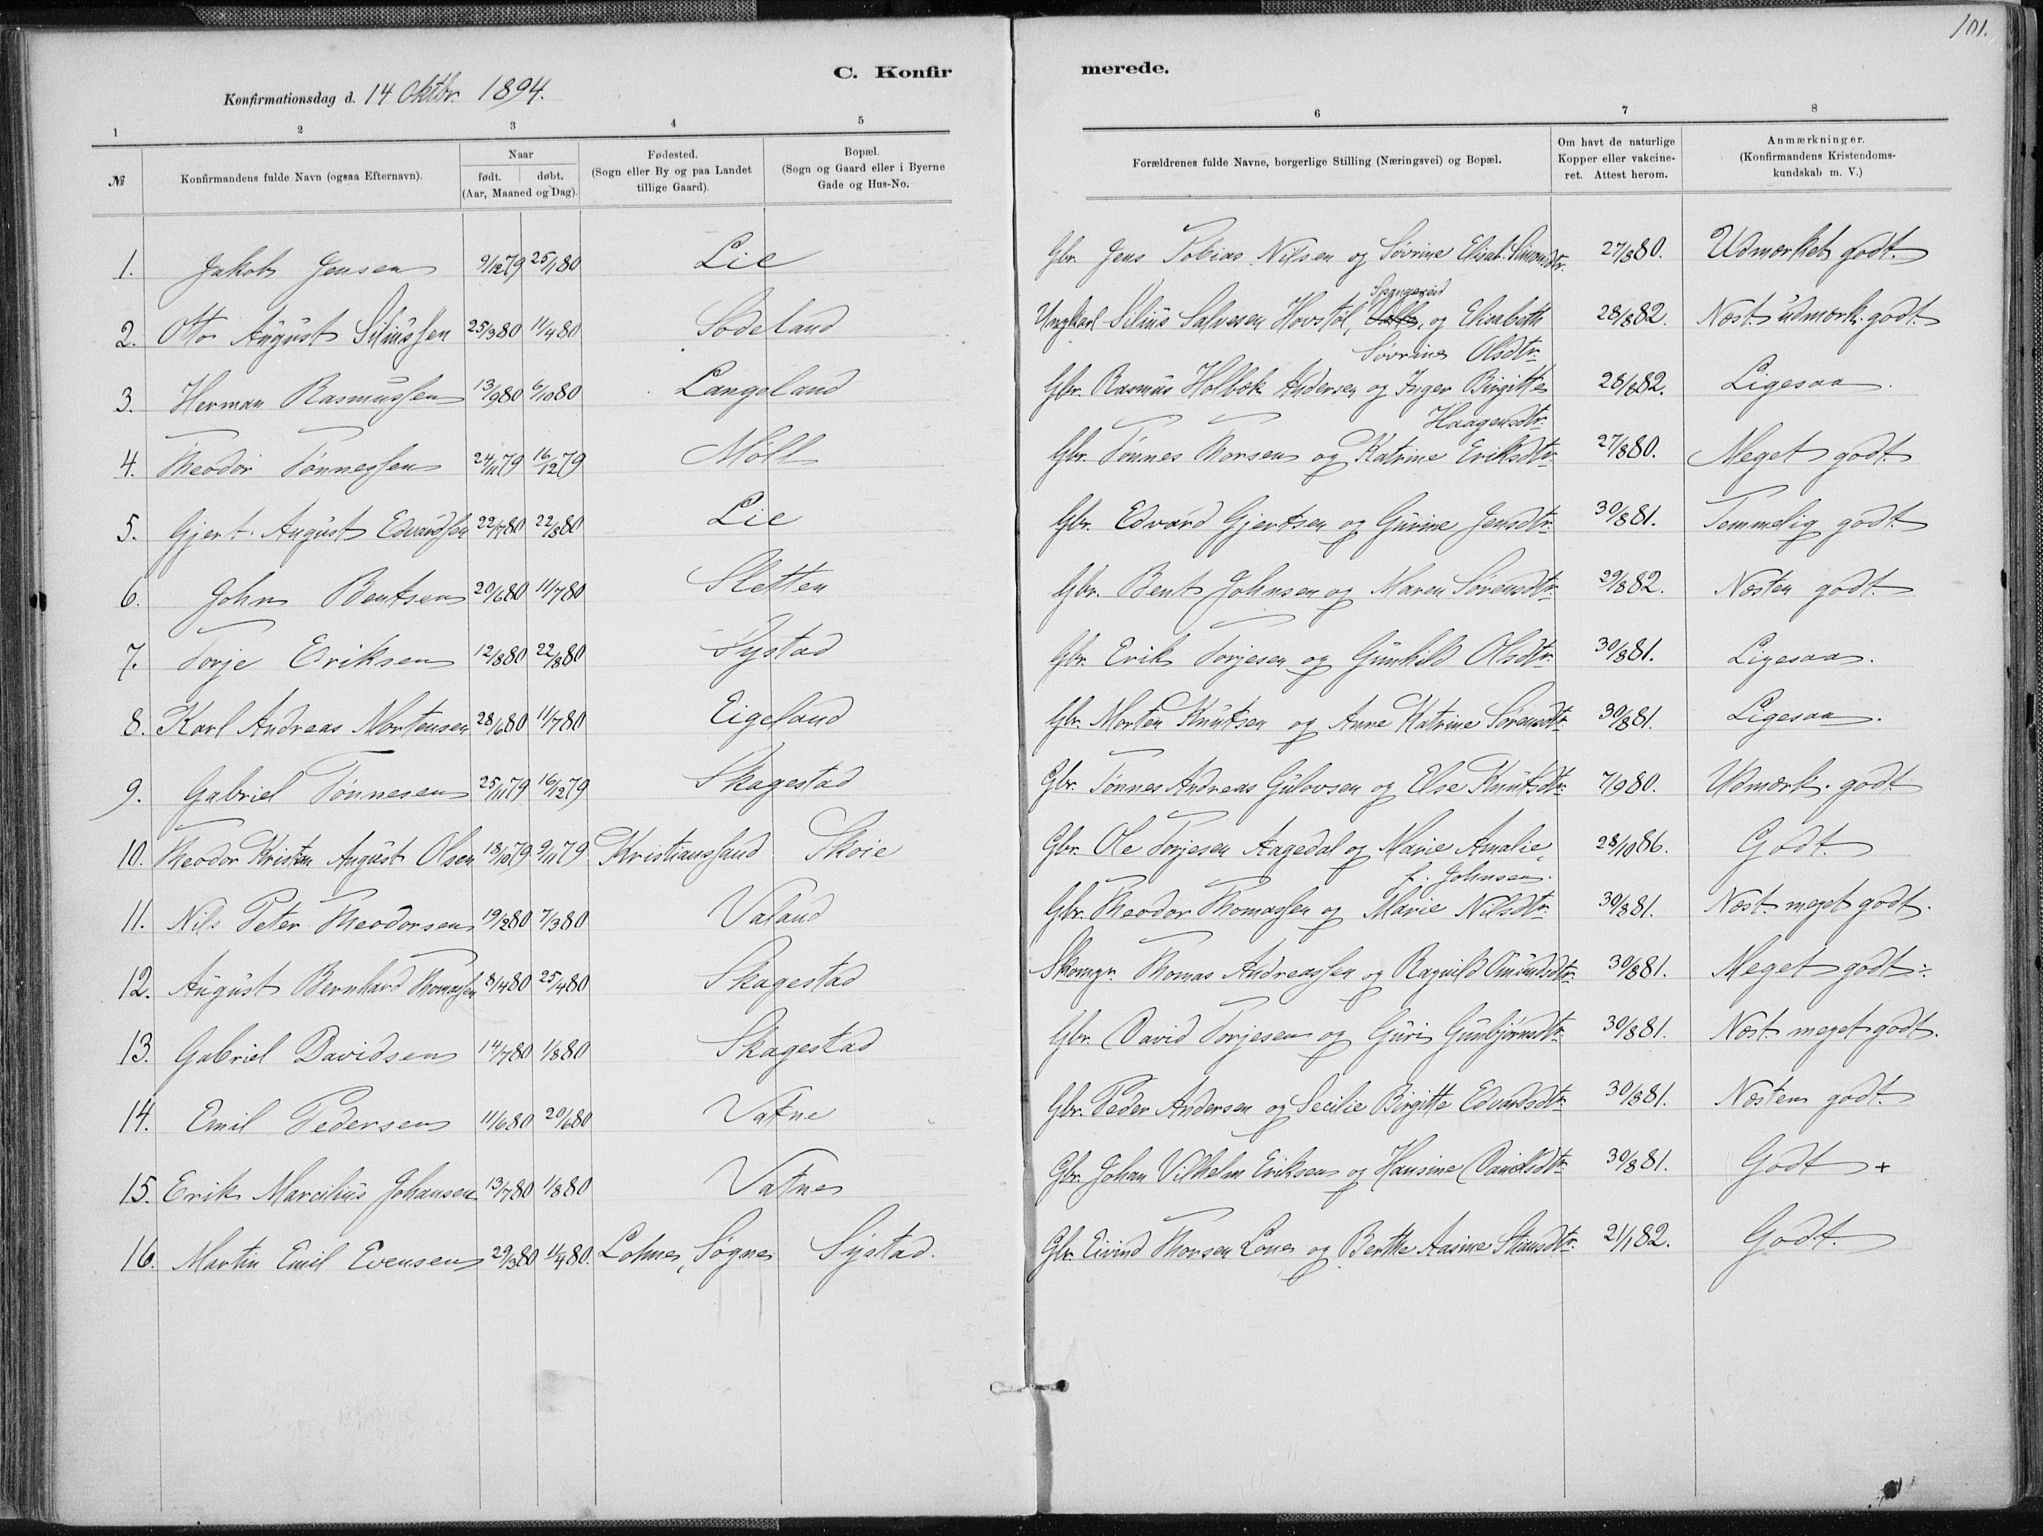 101.
C. Konfirmerede.
Konfirmationsdag d. 14 Oktbr. 1894.
1 2 3 4 5 6 7 8
№ Konfirmandens fulde Navn (ogsaa Efternavn). Naar født. døbt. (Aar, Maaned og Dag). Fødested. (Sogn eller By og paa Landet tillige Gaard). Bopæl. (Sogn og Gaard eller i Byerne Gade og Hus-No. Forældrenes fulde Navne, borgerlige Stilling (Næringsvei) og Bopæl. Om havt de naturlige Kopper eller vakcineret. Attest herom. Anmærkninger. (Konfirmandens Kristendomskundskab m. V.)
1. Jakob Jensen 9/12 79 25/1 80 Lie Gbr. Jens Tobias Nilsen og Sövrine Elisab. Simonsdtr. 27/8 80. Udmærket godt.
2. Otto August Siliussen 25/3 80 11/4 80 Södeland Ungkarl Silius Salvesen Hovstöl, Spangereid, og Elisabeth Sövrine Olsdtr. 28/8 82. Næst. udmærk. godt.
3. Herman Rasmussen 13/9 80 6/10 80 Langeland Gbr. Rasmus Holbek Andersen og Inger Birgitte Haagensdtr. 28/8 82. Ligesaa.
4. Theodor Tönnessen 24/11 79 16/12 79 Möll Gbr. Tönnes Thorsen og Katrine Eriksdtr. 27/8 80. Meget godt.
5. Gjert August Edvardsen 22/7 80 22/8 80 Lie Gbr. Edvard Gjertsen og Gurine Jensdtr. 30/8 81. Temmelig godt
6. John Bentsen 20/6 80 11/7 80 Sletten Gbr. Bent Johnsen og Maren Sörensdtr. 29/8 82. Næsten godt.
7. Torje Eriksen 12/8 80 22/8 80 Systad Gbr. Erik Torjesen og Gunhild Olsdtr. 30/8 81. Ligesaa.
8. Karl Andreas Mortensen 28/6 80 11/7 80 Eigeland Gbr. Morten Knutsen og Anne Katrine Sörensdtr. 30/8 81. Ligesaa.
9. Gabriel Tönnesen 25/11 79 16/12 79 Skagestad Gbr. Tönnes Andreas Gulovsen og Else Knutsdtr. 7/9 80. Udmærk. godt
10. Theodor Kristen August Olsen 18/10 79 9/11 79 Kristianssand Skoie Gbr. Ole Torjesen Aagedal og Marie Amalie, f. Johnsen. 28/10 86. Godt.
11. Nils Peter Theodorsen 19/2 80 7/3 80 Valand Gbr. Theodor Thomassen og Marie Nilsdtr. 30/8 81. Næst. meget godt.
12. August Bernhard Thomassen 8/4 80 25/4 80 Skagestad Skomgr. Thomas Andreassen og Ragnild Omundsdtr. 30/8 81. Meget godt ÷
13. Gabriel Davidsen 14/7 80 1/8 80 Skagestad Gbr. David Torjesen og Guri Gunbjörnsdtr. 30/8 81. Næst. meget godt.
14. Emil Pedersen 11/6 80 20/6 80 Vatne Gbr. Peder Andersen og Secilie Birgitte Edvardsdtr. 30/8 81. Næsten godt.
15. Erik Marcilius Johansen 13/7 80 1/8 80 Vatne Gbr. Johan Vilhelm Eriksen og Hansine Davidsdtr. 30/8 81. Godt +
16. Martin Emil Evensen 29/3 80 11/4 80. Lohne, Sögne Systad. Gbr. Eivind Thorsen Lone og Berthe Aasine Stiansdtr. 21/1 82. Godt.